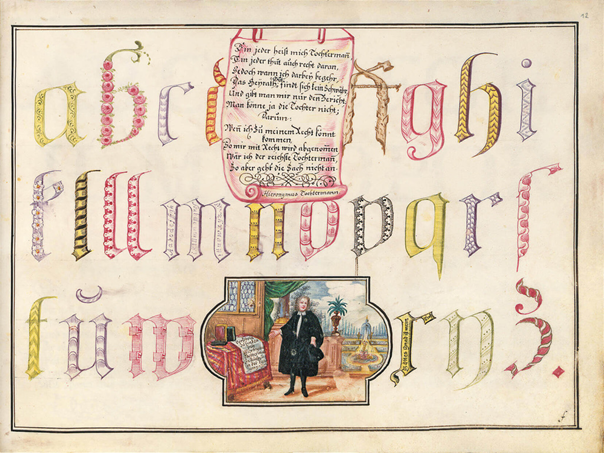 a b c d
Ein jeder heist mich Tochterman̄.
Ein jeder thut auch recht daran,
Jedoch wann ich darbey begehr,
Das Heyrath= findt sich kein Schwähr,
Und gibt man mir nur den Bericht,
Man könne ja die Tochter nicht;
Darum:
Wen̄ ich zu meinem Recht könnt
kommen,
So mir mit Recht wird abgenom̄en
Wär ich der reichste Tochterman̄.
So aber geht die Sach nicht an.
Hieronymus Tochtermann.
g h i
k l ll m n o p q r ſ
t ŭ w x y z.